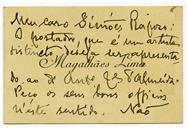 Meu caro Simões Raposo:
O portador, que é um artista
distincto, deseja ser apresenta
Magalhães Lima
do, ao Dr. d'Almeida.
Peço os seus bons officios
n'este sentido. Não